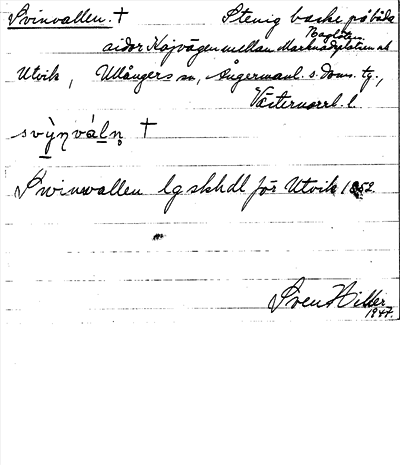 Svinvallen. † Stenig backe på båda
sidor Kajvägen mellan Marknadsplatsen och
Utvik, Ullångers sn, Ångermanl. s. doms. tg.,
Västernorrl. l.
svỳn̥váln̥ †
Svinvallen lgskhdl för Utvik 1852
Sven Hiller
1947.